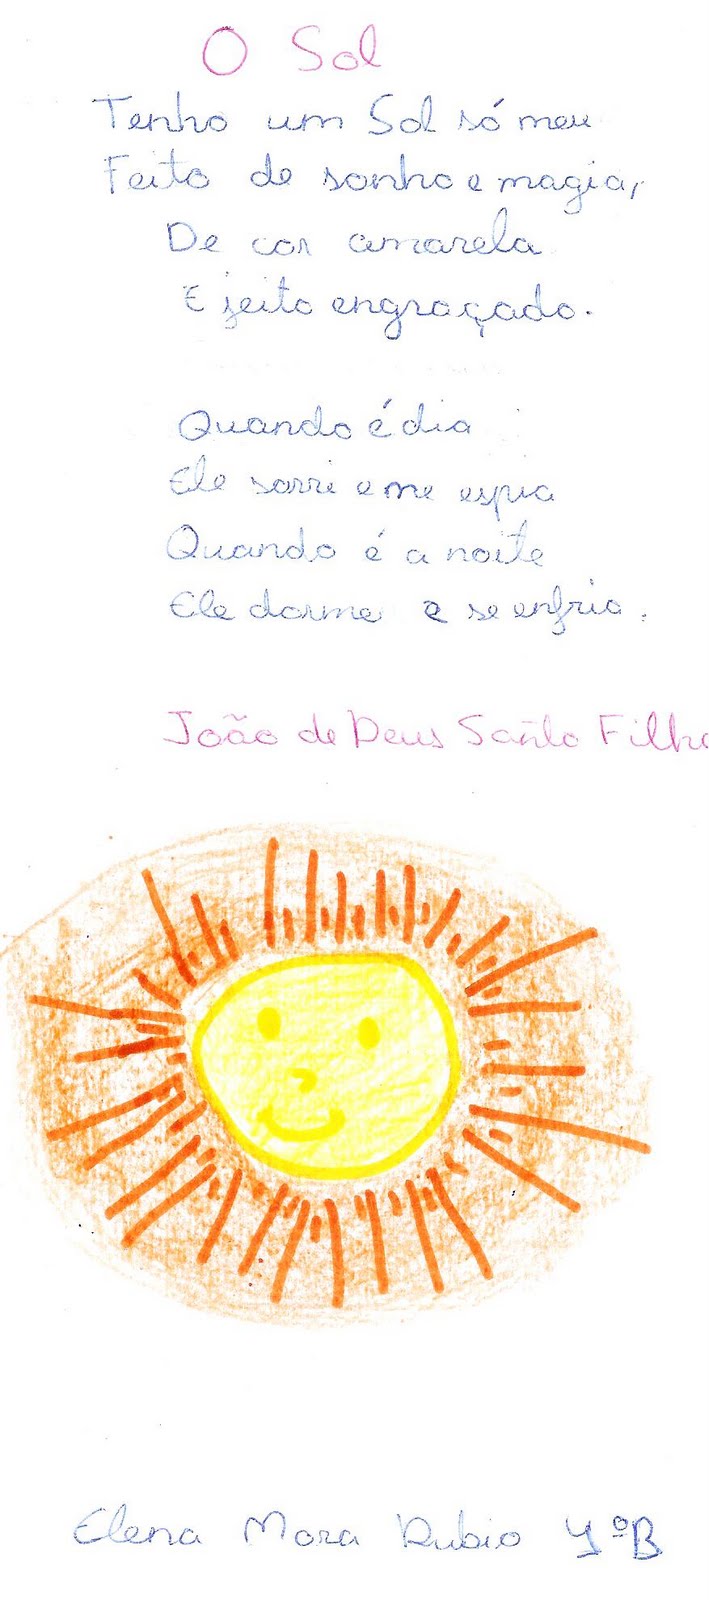 O Sol
Tenho um Sol só meu
Feito de sonho e magia,
De cor amarela
E jeito engraçado.
Quando é dia
Ele sorri e me espia
Quando é a noite
Ele dorme e se enfria.
João de Deus Sañto Filho
Elena Mora Rubio 4ºB